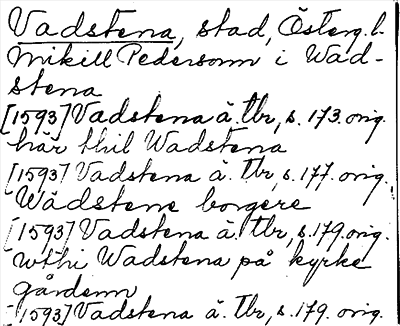 Vadstena, stad, Österg. l.
Mikill Pedersonn i Wad-
stena
[1593] Vadstena ä. tbr, s. 173. orig.
här thil Wadstena
[1593] Vadstena ä. tbr, s. 177. orig.
Wådstene borgere
[1593] Vadstena ä. tbr, s. 179. orig.
wthi Wadstena på kyrke
gårdenn
[1593] Vadstena ä. tbr, s. 179. orig.